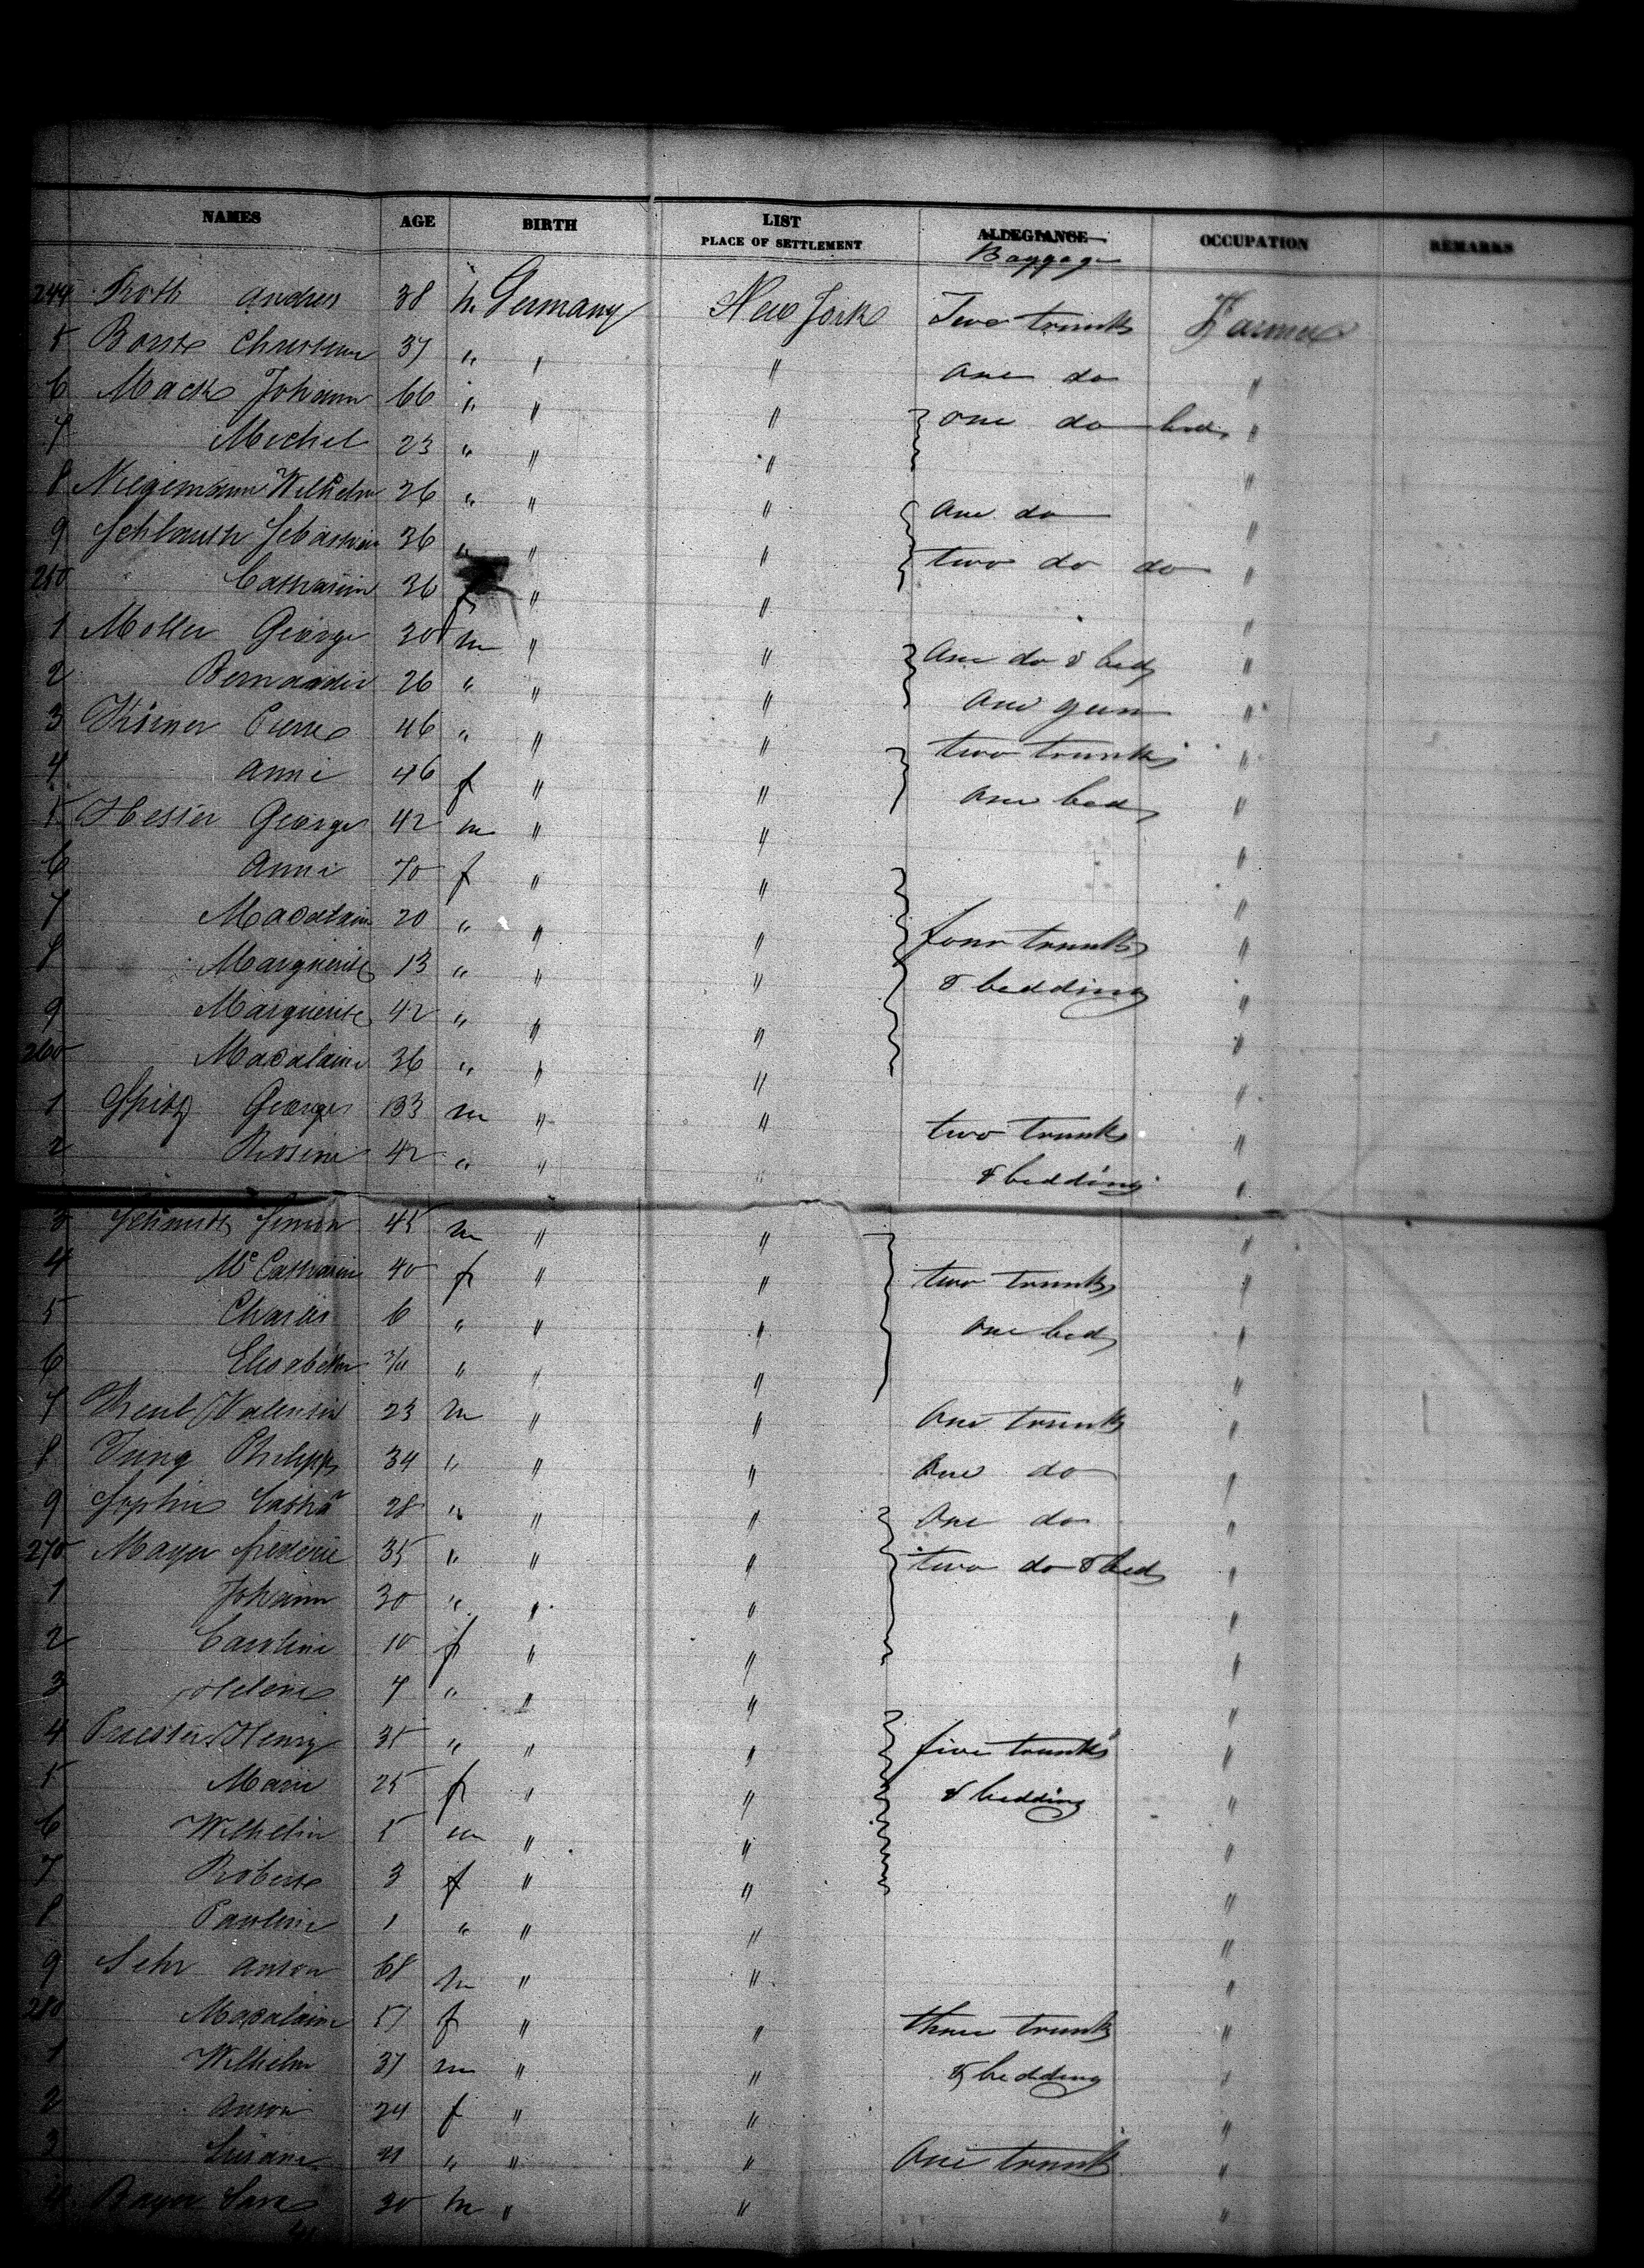 NAMES AGE BIRTH LIST PLACE OF SETTLEMENT ALLEGIANCE OCCUPATION REMARKS
Baggage
244 Roth Andres 38 m. Germany New York Two trunks Farmer
5 37 " " " one do "
6 Mack Johann 66 " " " one do bed "
7 Michel 23 " " " "
8 Niegemann Wilhelm 26 " " " one do "
9 Schlauth Sebastian 36 " " " two do do "
250 Catharin 36 f " " "
1 Moller George 30 m " " one do & bed "
2 26 " " " one gun "
3 Körner Pierre 46 " " " two trunks "
4 Anne 46 f " " one bed "
5 Hesser George 42 m " " "
6 Anne 70 f " " "
7 Madalain 20 " " " four trunks "
8 Marguerite 13 " " " & bedding "
9 Marguerite 42 " " " "
260 Madalaine 36 " " " "
1 Spitz George 33 m " " two trunks "
2 Rosine 42 " " " & bedding "
3 Schmidt Simon 45 m " " "
4 Me Catharine 40 f " " two trunks "
5 Charles 6 " " " one bed "
6 Elisabeth " " " "
7 Valentin 23 m " " one trunk "
8 Jung Philipp 34 " " " one do "
9 Sophie Catha 28 " " " one do "
270 Mayer Frederic 35 " " " two do & bed "
1 Johann 30 " " " "
2 Caroline 10 f " " "
3 Helene 7 " " " "
4 Priester Henry 35 " " " five trunks "
5 Marie 25 f " " & bedding "
6 Wilhelm 5 m " " "
7 Robert 3 f " " "
8 Pauline 1 " " " "
9 Sehr Anton 68 m " " "
280 Madalaine 57 f " " three trunks "
1 Wilhelm 37 m " " & bedding "
2 Anton 24 f " " "
3 Susane 21 " " " One trunk "
4 Bayer 30 m " " "